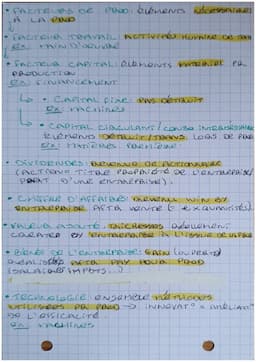 • FACTEURS DE PROD: ÉLÉMENTS NÉCESSAIRES
À LA PROD
• FACTEUR TRAVAIL: ACTIVITÉ HUMAINE DE
EX: MAIN D'OEUVRE
• FACTEUR CAPITAL: ÉLÉMENTS PR
PRODUCTION
EX: FINANCEMENT
↳ • CAPITAL FIXE: PAS DÉTRUIT
EX: MACHINES
↳ • CAPITAL CIRCULANT/CONSO INTERMÉDIAIRE
ÉLÉMENTS DÉTRUIT/TRANS LORS DE PROD
EX: MATIÈRES PREMIÈRE
• DIVIDENDES: REVENU DE ACTIONNAIRE
(ACTION: TITRE PROPRIÉTÉ DE L'ENTREPRISE/
PART D'UNE ENTREPRISE).
• CHIFFRE D'AFFAIRE: REVENU BY
ENTREPRISE AFTA VENTE (
• VALEUR AJOUTÉ: RICHESSES
BY ENTREPRISE À L'ISSUE DE
• BÉNEF DE L'ENTREPRISE: GAIN
RÉALISÉ AFTA PAY PROD
(SALAIRES IMPOTS...)
• TECHNOLOGIE: ENSEMBLE MÉTHODES
UTILISÉES PR PROD → INNOVAT° =
DE L'EFFICACITÉ
EX: MACHINES